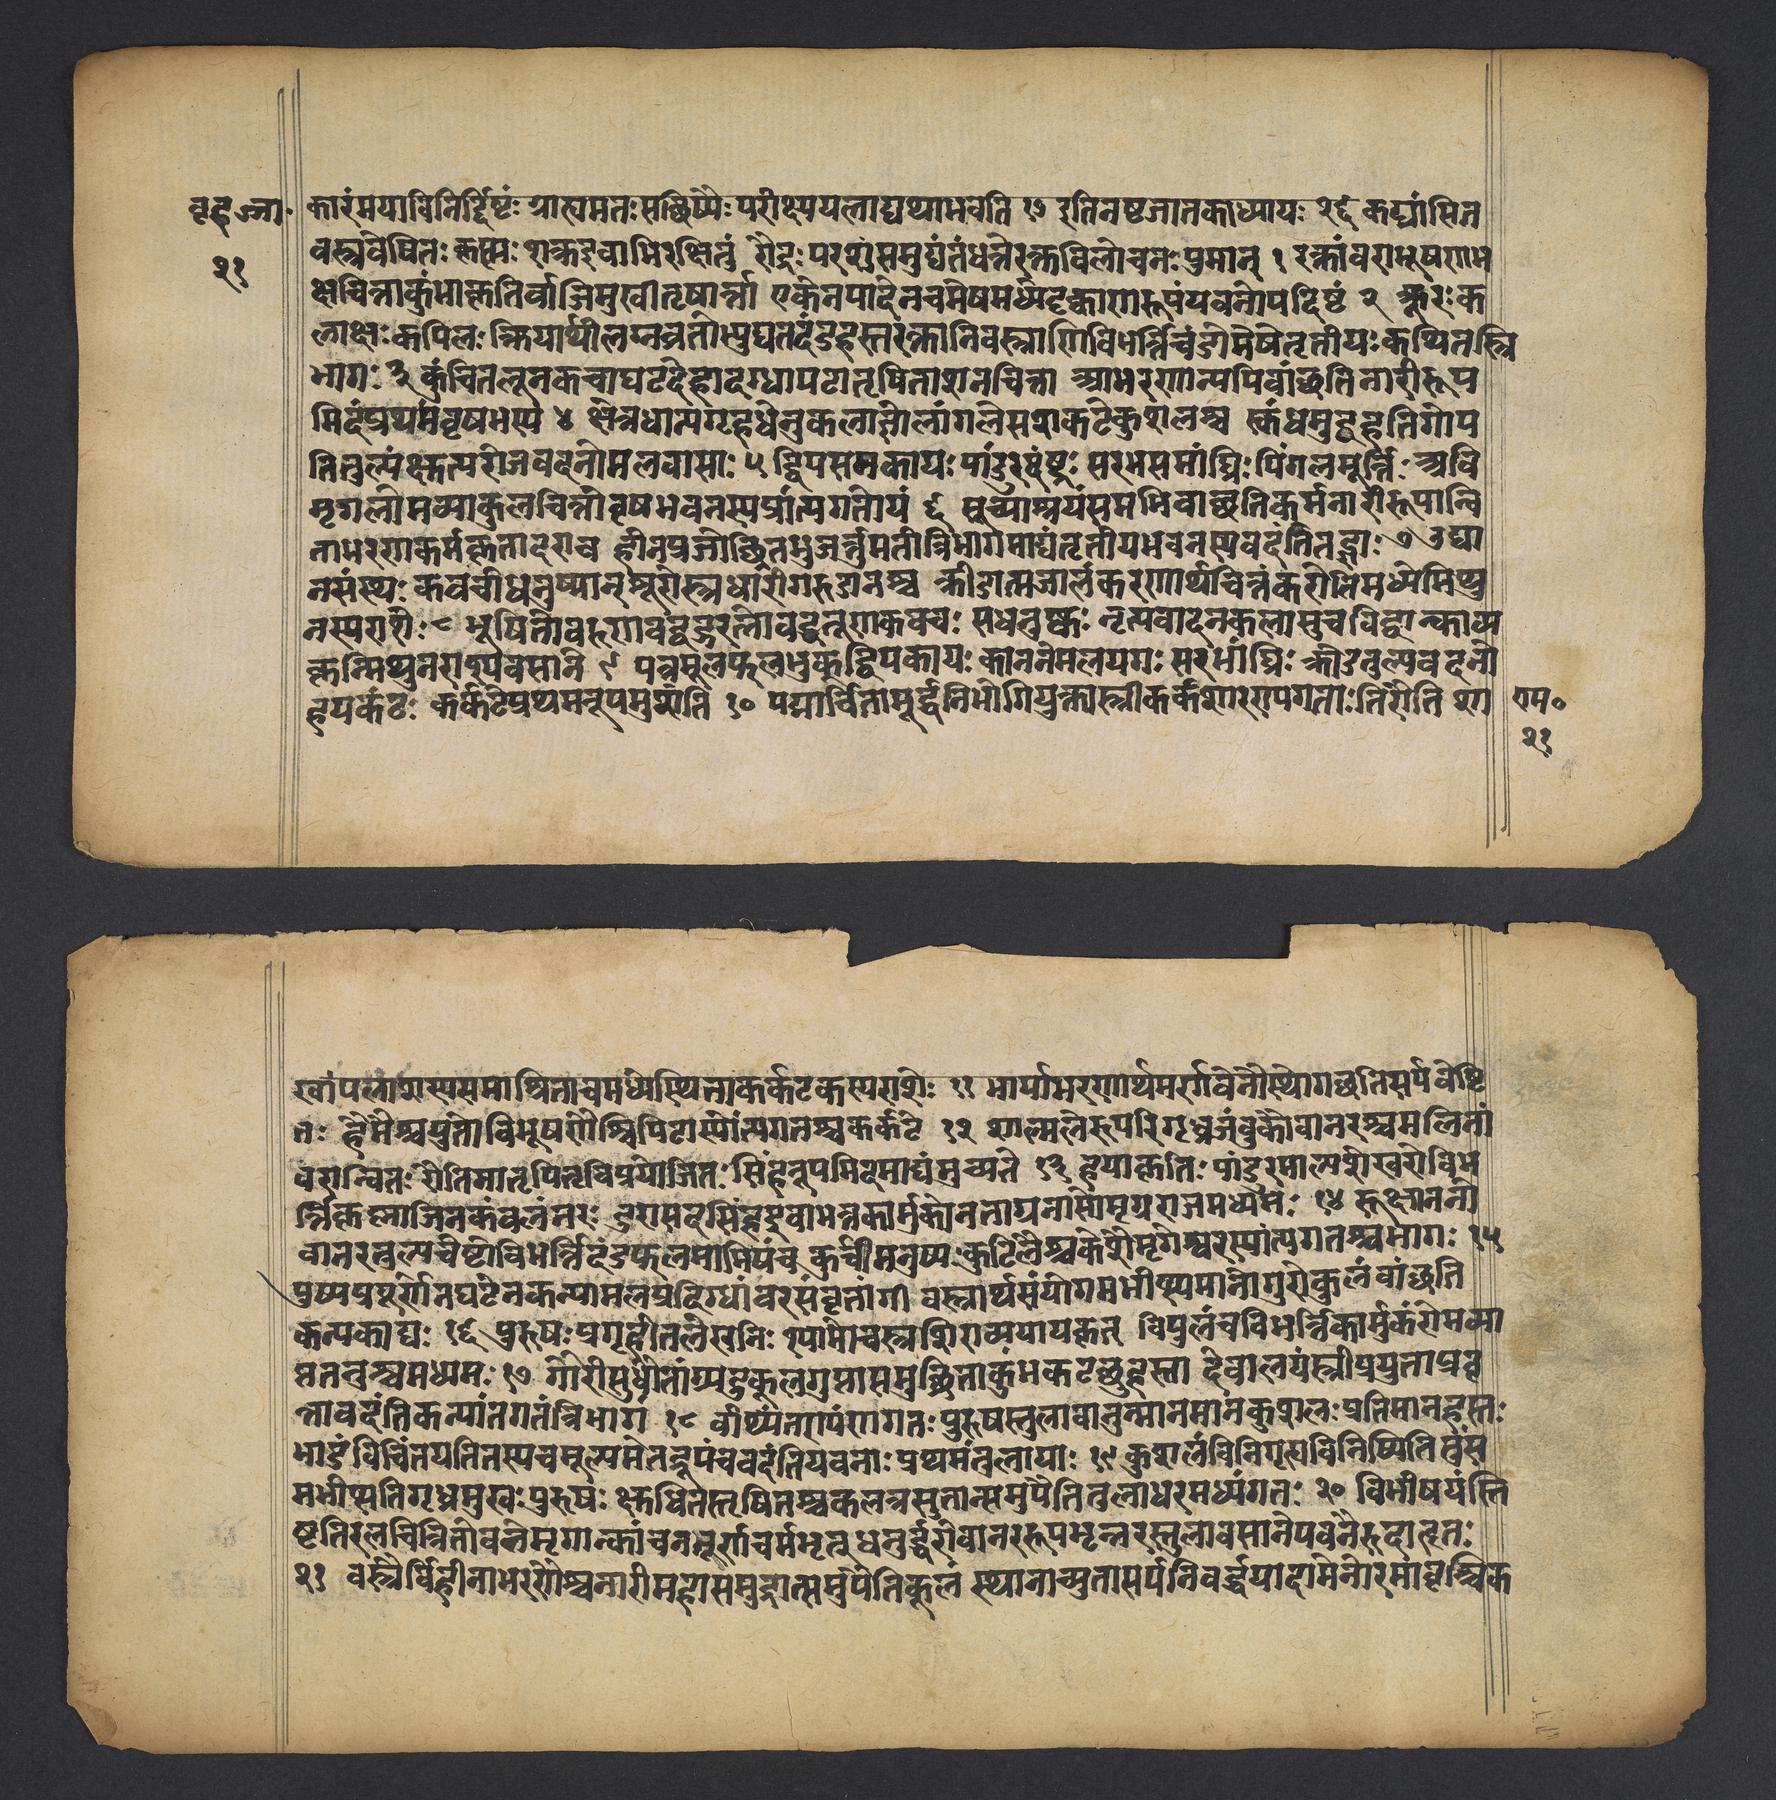 वृहज्जा॰
२१
कारंमयाविनिर्द्दिष्टंः ग्राह्यमतः सछिष्यैः परीक्ष्ययत्नाद्यथाभवेति १७ इतिनष्टजातकाध्यायः २६ कट्यांसित
वस्त्रवेषितः कृष्मः शक्तइवाभिरक्षितुं रौद्रः परशुंसमुद्यतंधत्तेरक्तविलोचनः पुमान् १ रक्तांवराभूषणभ
क्षचित्ताकुंभाकृतिर्वाजिमुखीतृषार्त्ता एकेनपादेनचमेषमध्येदृक्काणरूपंयवनोपदिष्टं २ क्रूरः क
लाक्षः कपिलः क्रियार्थीलग्नव्रतोभ्युद्यतदंडहस्तः रक्तानिवस्त्राणिविभर्त्तिचंडोमेषेतृतीयः कथितस्त्रि
भागः ३ कुंचितलूनकचाघटदेहादग्धापटातृषिताशनचित्ता आभरणान्यपिवांछतिनारीरूप
मिदंप्रथमंवृषभस्य ४ क्षेत्रधान्यगृहधेनुकलाज्ञोलांगलेसशकटेकुशलश्च स्कंधमुद्वहतिगोप
तितुल्यंक्षुत्परोजवदनोमलवासाः ५ द्विपसमकायः पांडुरदंष्ट्रः सरभसमांघ्रिः पिंगलमूर्त्तिः अवि
मृगलोमव्याकुलचित्तोवृषभवनस्यप्रांत्यगतोयं ६ सूच्याश्रयंसमभिवाञ्छतिकर्मनारीरूपान्वि
ताभरणकर्मकृतादराच हीनप्रजोछ्रितभुजर्त्तुमतीत्रिभागमाद्यंतृतीयभवनस्यवदंतितज्ज्ञाः ७ उद्या
नसंस्थः कवचीधनुष्मान्शूरोस्त्रधारीगरुडाननश्च क्रीडात्मजालंकरणार्थचिंतंकरोतिमध्येमिथु
नस्यराशेः ८ भूषितोवरुणवद्बहुरत्नोवद्धतूणकवचः सधनुष्कः नृत्यवादनकलासुचविद्वान्काव्य
कृन्मिथुनराश्यवसाने ९ पत्रमूलफलभृकद्विपकायः काननेमलयगः सरभांघ्रिः क्रोडतुल्यवदनो
हयकंठः कर्कटेप्रथमरूपमुशंति १० पद्मार्चितामूर्द्ध्वनिभोगियुक्तास्त्रीकर्कशारण्यगताः तिरौति शा
राम॰
२१
खांपलाशस्यसमाश्रिताचमध्येस्थिताकर्कटकस्यराशेः ११ भार्याभरणार्थमर्णवंनौस्थोगछतिसर्पवेष्टि
तः हैमैश्चयुतोविभूषणैश्चिपिटास्योंत्यगतश्चकर्कटे १२ शाल्मलेरुपरिगृध्रजंबुकौवानरश्चमलितां
वरान्वितः रौतिमातृपितृविप्रयोजितः सिंहरूपमिदमाद्यमुच्यते १३ हयाकृतिः पांडुरमाल्यशेखरोविभ
र्त्तिकृष्णाजिनकंवलंनरः दुरासदसिंहइवाभत्तकार्मुकोनताग्रनासोमृगराजमध्येमः १४ रूक्षाननो
वानरतुल्यचेष्टोविभर्त्तिदंडफलमामिषंच कूर्चीमनुष्यः कुटिलैश्चकेशैर्मृगेश्वरस्यांत्यगतश्चभागः १५
पुष्पप्रपूर्णेनघटेनकन्यामलप्रदिग्धांवरसंवृतांगी वस्त्रार्थसंयोगमभीप्स्यमानोगुरोकुलंवांछति
कन्यकाद्यः १६ पुरुषः प्रगृहीतलेखनिः श्यामोवस्त्रशिराव्ययायकृत् विपुलंचविभर्त्तिकार्मुकंरोमव्या
प्ततनुश्चमध्यमः १७ गौरीसुधौतांग्र्यदुकूलगुप्तासमुछ्रिताकुंभकटछुहस्ता देवालयंस्त्रीप्रयुताप्रवृ
त्तावदंतिकन्यांतगतंत्रिभागं १८ वीथ्यंतरापंणगतः पुरुषस्तुलावानुन्मानमानकुशलः प्रतिमानहस्तः
भांडंविचिंतयतितस्यचमूल्यमेतद्रूपंचवदंतियवनाः प्रथमंतुलायाः १९ कुशलंविनिगृह्यविनिष्पितितुंस
मभीप्सतिगृध्रमुखः पुरुषः क्षुधितस्तृषितश्चकलत्रसुतान्समुपैतितुलाधरमध्यगतः २० विभीषयंस्ति
ष्टतिरत्नचित्रितोवनेमृगान्कांचनतूर्णचर्मभृत् धनुर्द्धरोवानररूपभृन्नरस्तुलावसानेयवनैरुदाहृतः
२१ वस्त्रैर्विहीनाभरणैश्चनारीमहासमुद्रात्समुपैतिकूलं स्थानाच्युतासर्पनिवद्धपादामनोरमावृश्चिक